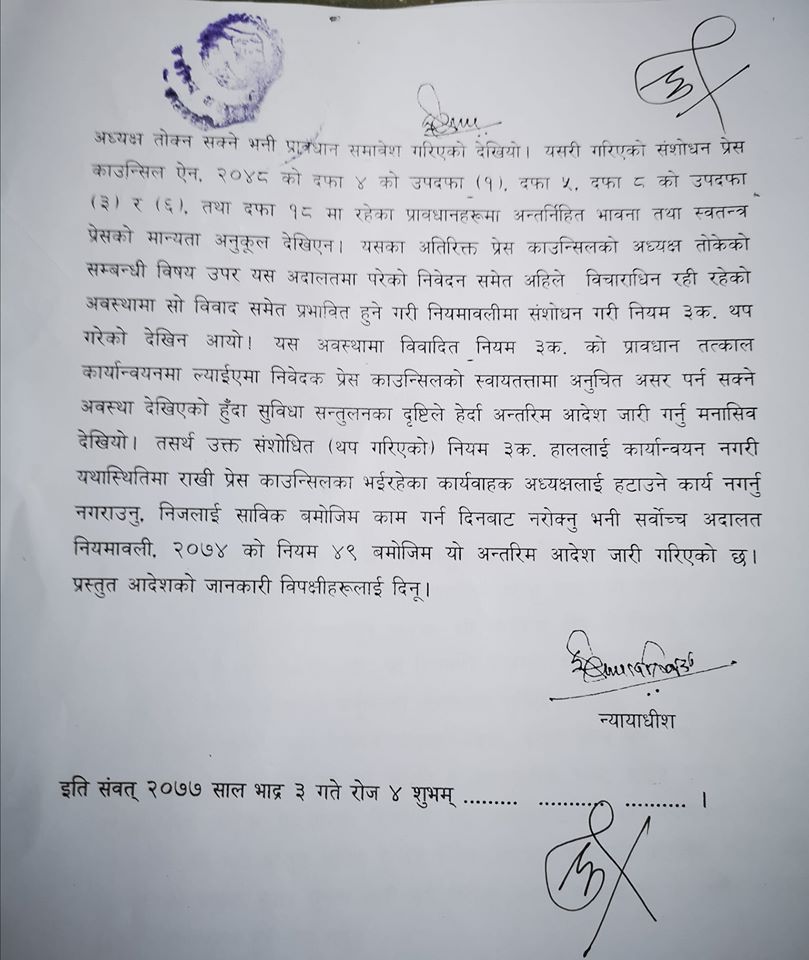 अध्यक्ष तोक्न सक्ने भनी प्रावधान समावेश गरिएको देखियो। यसरी गरिएको संशोधन प्रेस
काउन्सिल ऐन, २०४८ को दफा ४ को उपदफा (१), दफा ५, दफा ८ को उपदफा
(३) र (६), तथा दफा १८ मा रहेका प्रावधानहरूमा अन्तर्निहित भावना तथा स्वतन्त्र
प्रेसको मान्यता अनुकूल देखिएन। यसका अतिरिक्त प्रेस काउन्सिलको अध्यक्ष तोकेको
सम्बन्धी विषय उपर यस अदालतमा परेको निवेदन समेत अहिले विचाराधिन रही रहेको
अवस्थामा सो विवाद समेत प्रभावित हुने गरी नियमावलीमा संशोधन गरी नियम ३क. थप
गरेको देखिन आयो। यस अवस्थामा विवादित नियम ३क. को प्रावधान तत्काल
कार्यान्वयनमा ल्याईएमा निवेदक प्रेस काउन्सिलको स्वायतत्तामा अनुचित असर पर्न सक्ने
अवस्था देखिएको हुँदा सुविधा सन्तुलनका दृष्टिले हेर्दा अन्तरिम आदेश जारी गर्नु मनासिव
देखियो। तसर्थ उक्त संशोधित (थप गरिएको) नियम ३क. हाललाई कार्यान्वयन नगरी
यथास्थितिमा राखी प्रेस काउन्सिलका भईरहेका कार्यवाहक अध्यक्षलाई हटाउने कार्य नगर्नु
नगराउनु, निजलाई साविक बमोजिम काम गर्न दिनबाट नरोक्नु भनी सर्वोच्च अदालत
नियमावली, २०७४ को नियम ४९ बमोजिम यो अन्तरिम आदेश जारी गरिएको छ।
प्रस्तुत आदेशको जानकारी विपक्षीहरूलाई दिनू।
न्यायाधीश
इति संवत् २०७७ साल भाद्र ३ गते रोज ४ शुभम् ......... .......... .......... ।